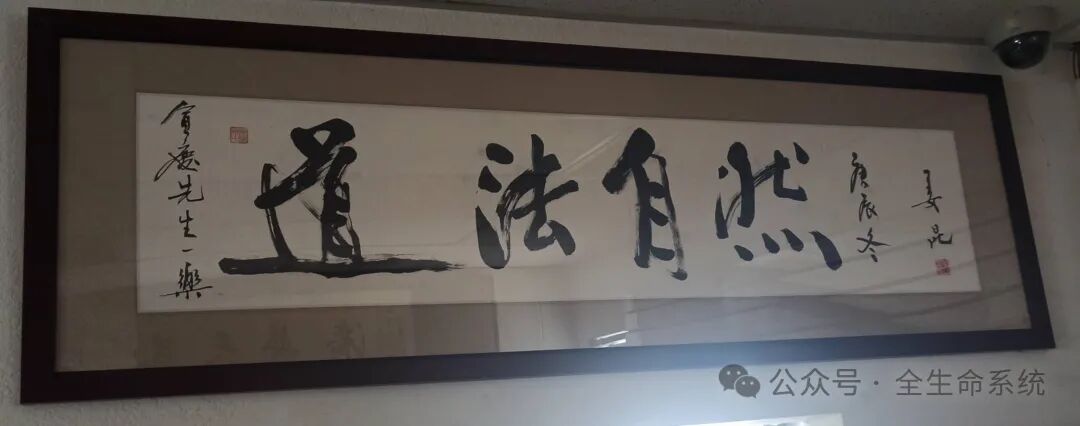 道法自然
先生一樂
庚辰冬
姜昆
公众号 · 全生命系统